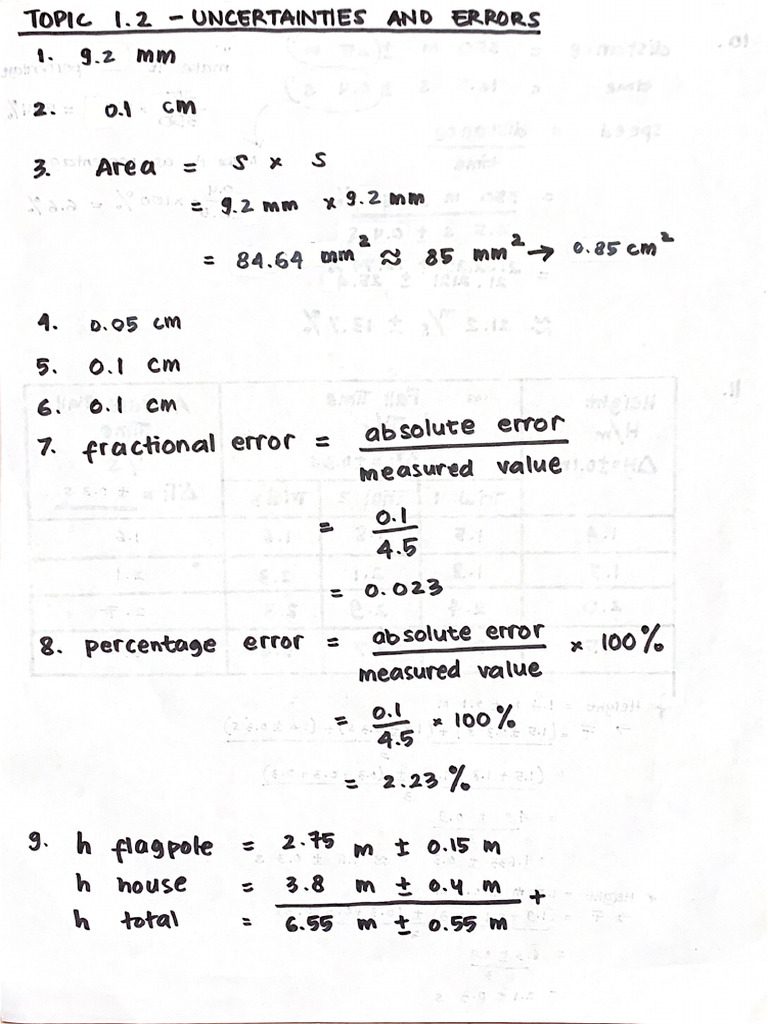 TOPIC 1.2 - UNCERTAINTIES AND ERRORS
1. 9.2 mm
2. 0.1 cm
3. Area = s x s
= 9.2 mm x 9.2 mm
= 84.64 mm² ≈ 85 mm² → 0.85 cm²
4. 0.05 cm
5. 0.1 cm
6. 0.1 cm
7. fractional error = absolute error / measured value
= 0.1 / 4.5
= 0.023
8. percentage error = absolute error / measured value x 100%
= 0.1 / 4.5 x 100%
= 2.23%
9. h flagpole = 2.75 m ± 0.15 m
h house = 3.8 m ± 0.4 m +
h total = 6.55 m ± 0.55 m